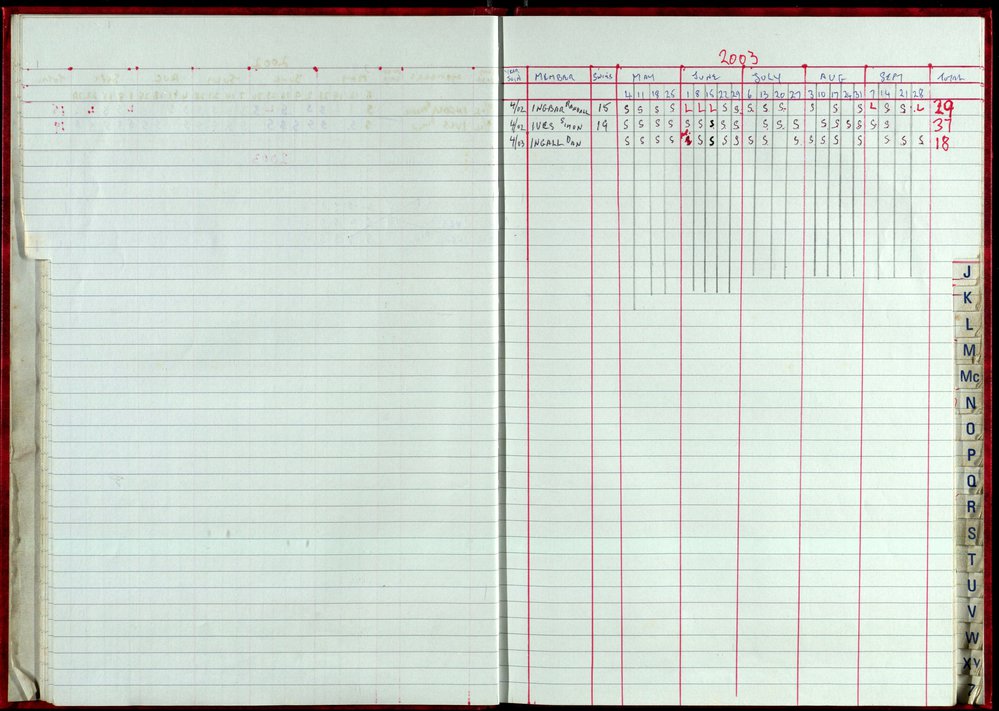 2003
YEAR JOIN MEMBER SWIMS MAY JUNE JULY AUG SEPT TOTAL
4 11 18 25 1 8 15 22 29 6 13 20 27 3 10 17 24 31 7 14 21 28
4/02 INGBAR RANDALL 15 S S S S L L L S S S S S S S S L S S L 19
4/02 IVES SIMON 19 S S S S S S S S S S S S S S S S S S 37
4/03 INGALL DAN S S S S S S S S S S S S S S S S S S S S 18
J
K
L
M
Mc
N
O
P
Q
R
S
T
U
V
W
XY
Z